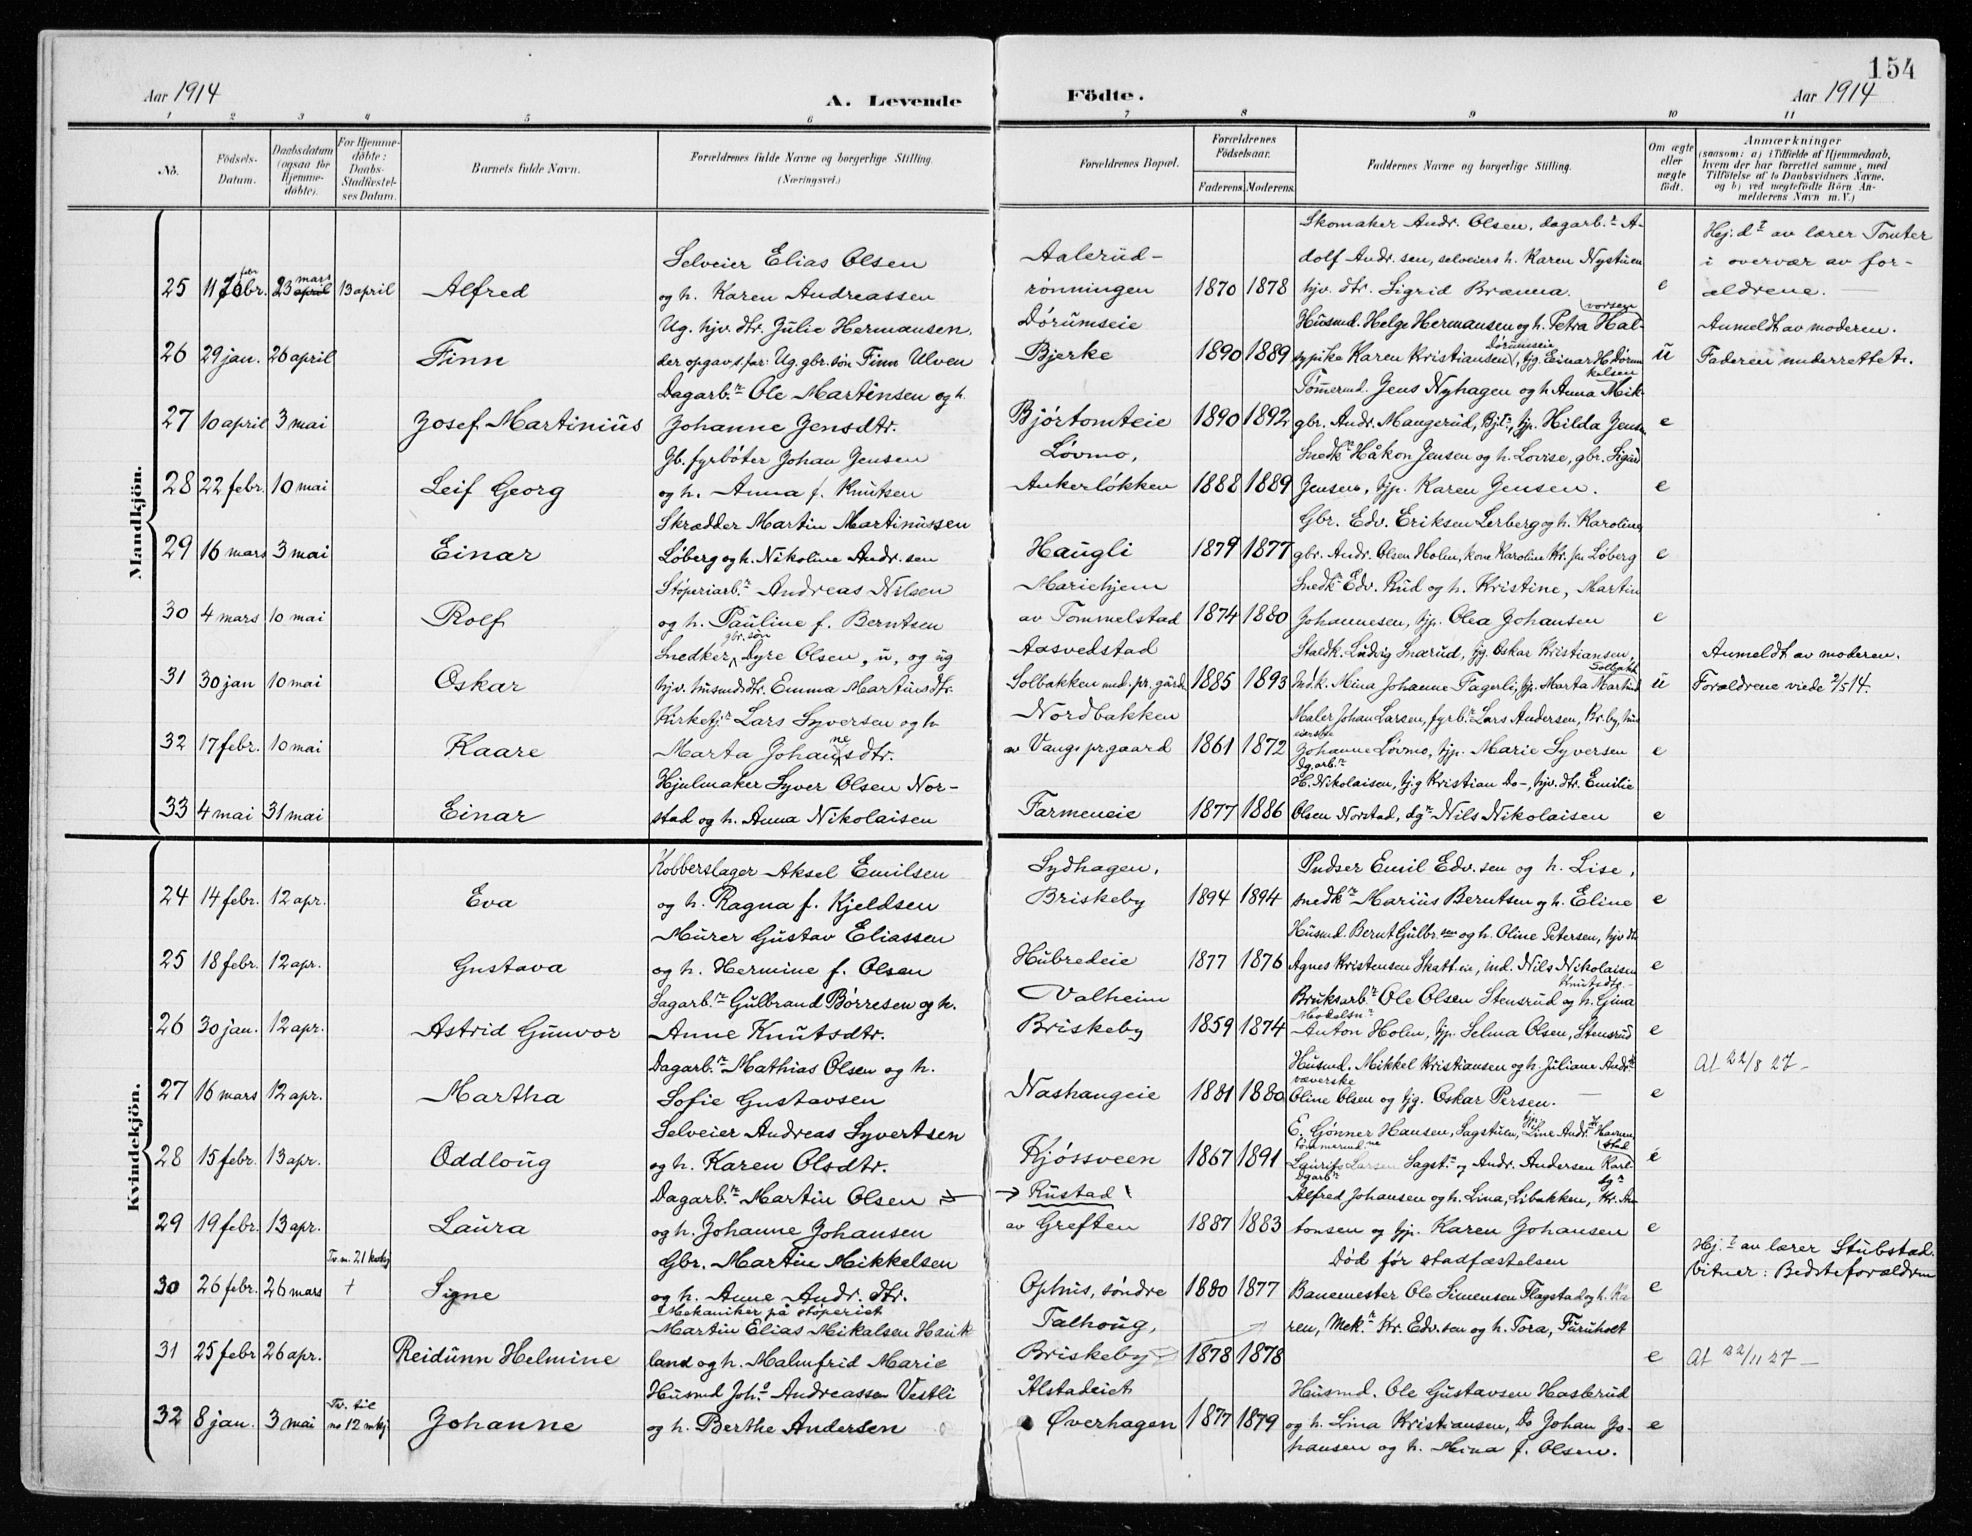 154
Aar 1914
A. Levende
Födte.
Aar 1914
1 2 3 4 5 6 7 8 9 10 11
No.
Födsels-
Datum.
Daabsdatum
(ogsaa for
Hjemme-
döbte).
For Hjemme-
döbte:
Daabs-
Stadfæstel-
ses Datum.
Barnets fulde Navn.
Forældrenes fulde Navne og borgerlige Stilling.
(Næringsvei.)
Forældrenes Bopæl.
Forældrenes
Födselsaar.
Faderens. Moderens.
Faddernes Navne og borgerlige Stilling.
Om ægte
eller
uægte
födt.
Anmærkninger
(saasom: a) i Tilfælde af Hjemmedaab,
hvem der har forrettet samme, med
Tilföielse af to Daabsvidners Navne.
og b) ved uegtefödte Börn An-
melderens Navn m. V.)
Mandkjön.
Skomaker Andr. Olsen, dagarb.r A-
Selveier Elias Olsen Aalerud- dolf Andr.sen, selveiers h. Karen Nystuen Hej.dt av lærer Tomter
25 11 febr. 23 mars april 13 april Alfred og h. Karen Andreassen rönningen 1870 1878 hjv. dtr. Sigrid Brænna. e i overvær av for-
ældrene. —
Ug. hjv. dtr. Julie Hermansen, Dørumseie Husmd. Helge Hermansen og h. Petra Hal- vorsen Anmeldt av moderen.
26 29 jan. 26 april Finn der opgav s. far: Ug. gbr. søn Finn Ulven Bjerke 1890 1889 sypike Karen Kristiansen, Dørumseie tjg. Einar H Dørum u Faderen underrettet.
Dagarb.r Ole Martinsen og h. Tømmermd. Jens Nyhagen og h. Anna Mik- kelsen
27 10 april 3 mai Josef Martinius Johanne Jensdtr. Bjørtomteie 1890 1892 gbr. Andr. Mangerud, tjp. Hilda Jensen e
Gb. fyrbøter Johan Jensen Løvmo, Snedkr Håkon Jensen og h. Lovise, gbr. Sigurd
28 22 febr. 10 mai Leif Georg og h. Anna f. Knutsen Ankerløkken 1888 1889 Jensen, tjp. Karen Jensen. e
Skrædder Martin Martinussen Gbr. Edv. Eriksen Lerberg og h. Karoline,
29 16 mars 3 mai Einar Løberg og h. Nikoline Andr.sen Haugli 1879 1877 gbr. Andr. Olsen Holm, kone Karoline Løberg e
Støperiarb.r Andreas Nilsen Mariehjem Snedk. Edv. Rud og h. Kristine, Martin
30 4 mars 10 mai Rolf og h. Pauline f. Berntsen av Tommelstad 1874 1880 Johannesen, tjp. Olea Johansen e
Snedker gbr. søn Dyre Olsen, u, og ug Aasvedstad Staldk. Ludvig Snærud, tjg. Oskar Kristiansen, Solbakk Anmeldt av moderen.
31 30 jan 10 mai Oskar hjv. husmds dtr. Emma Martinsdtr. Solbakken und. pr. gård 1885 1893 Mina Johanne Fagerli, tjp. Marta u Forældrene viede 2/5 14.
Kirketj.r Lars Syversen og h Nordbakken Maler Johan Larsen, fyrb.r Lars Andersen, Br.by,
32 17 febr. 10 mai Kaare Marta Johannesdtr. av Vangs pr.gaard 1861 1872 Johanne Løvmo, tjp. Marie Syversen e
Hjulmaker Syver Olsen Nor- Dg.arb.r H. Nikolaisen, tjg Kristian Do-, hjv. dtr. Emilie
33 4 mai 31 mai Einar stad og h. Anna Nikolaisen Farmeneie 1877 1886 Olsen Norstad, dgr Nils Nikolaisen e
Kvindekjön.
Kobberslager Aksel Emilsen Sydhagen, Pudser Emil Edv.sen og h. Lise,
24 14 febr. 12 apr. Eva og h. Ragna f. Kjeldsen Briskeby 1894 1894 snedkr Marius Berntsen og h. Eline e
Murer Gustav Eliassen Husmd. Bernt Gulbr.sen og h. Oline Petersen, hjv dtr
25 18 febr. 12 apr. Gustava og h. Hermine f. Olsen Hubredeie 1877 1876 Agnes Kristensen Skatteie, ind. Nils Nikolaisen e
Sagarb.r Gulbrand Børresen og h. Valheim Bruksarb.r Ole Olsen Stensrud og h. Gina Knutsdtr.
26 30 jan. 12 apr. Astrid Gunvor Anne Knutsdtr. Briskeby 1859 1874 Anton Holm, tjp. Selma Olsen, Stensrud e
Dagarb.r Mathias Olsen og h. Husmd. Mikkel Kristiansen og h. Juliane Andr. At 22/8 27 -
27 16 mars 12 apr. Martha Sofie Gustavsen Nashaugeie 1881 1880 væverske Oline Olsen og tjg. Oskar Persen. — e
Selveier Andreas Syvertsen E. Gjønner Hansen, Sagstuen, Line Andr.
28 15 febr. 13 apr. Oddloug og h. Karen Olsdtr. Kjøssveen 1867 1891 Laurits Larsen Sagst. og Andr. Andersen e
Dagarb.r Martin Olsen → → Rustad Dgarb.r Alfred Johansen og h. Lina, Libakken, Kr. An-
29 19 febr. 13 apr. Laura og h. Johanne Johansen av Greften 1887 1883 tonsen og tjp. Karen Johansen e
Tv. m. 21 Gbr. Martin Mikkelsen Død før stadfæstelsen Hj.t av lærer Stubstad.
30 26 febr. 26 mars + Signe og h. Anne Andr. dtr. Ophus, søndre 1880 1877 Banemester Ole Simensen Flagstad og h. Ka- e Vitner: Bedsteforældren
Mekaniker på støperiet
Martin Elias Mikalsen Hauk- Talhoug, ren, Mek.r Kr. Edv.sen og h. Tora, Furuholt
31 25 febr 26 apr. Reidunn Helmine land og h. Malmfrid Marie Briskeby 1878 1878 e At 22/11 27 —
Husmd Joh. Andreassen Vestli Ålstadeiet Husmd. Ole Gustavsen Hasterud
32 8 jan. 3 mai Tv. til no 12 mkj Johanne og h. Berthe Andersen Øverhagen 1877 1879 og h. Lina Kristiansen, Do Johan Jo- e
hansen og h. Mina f. Olsen.